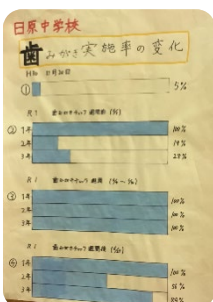 日原中学校
歯みがき実施率の変化
H30 11月30日
① 5%
R1 歯みがきチェック週間前
② 1年 100%
2年
3年
R1 歯みがきチェック週間
③ 1年 100%
2年 100%
3年 100%
R1 歯みがきチェック週間後
④ 1年 100%
2年 56%
3年